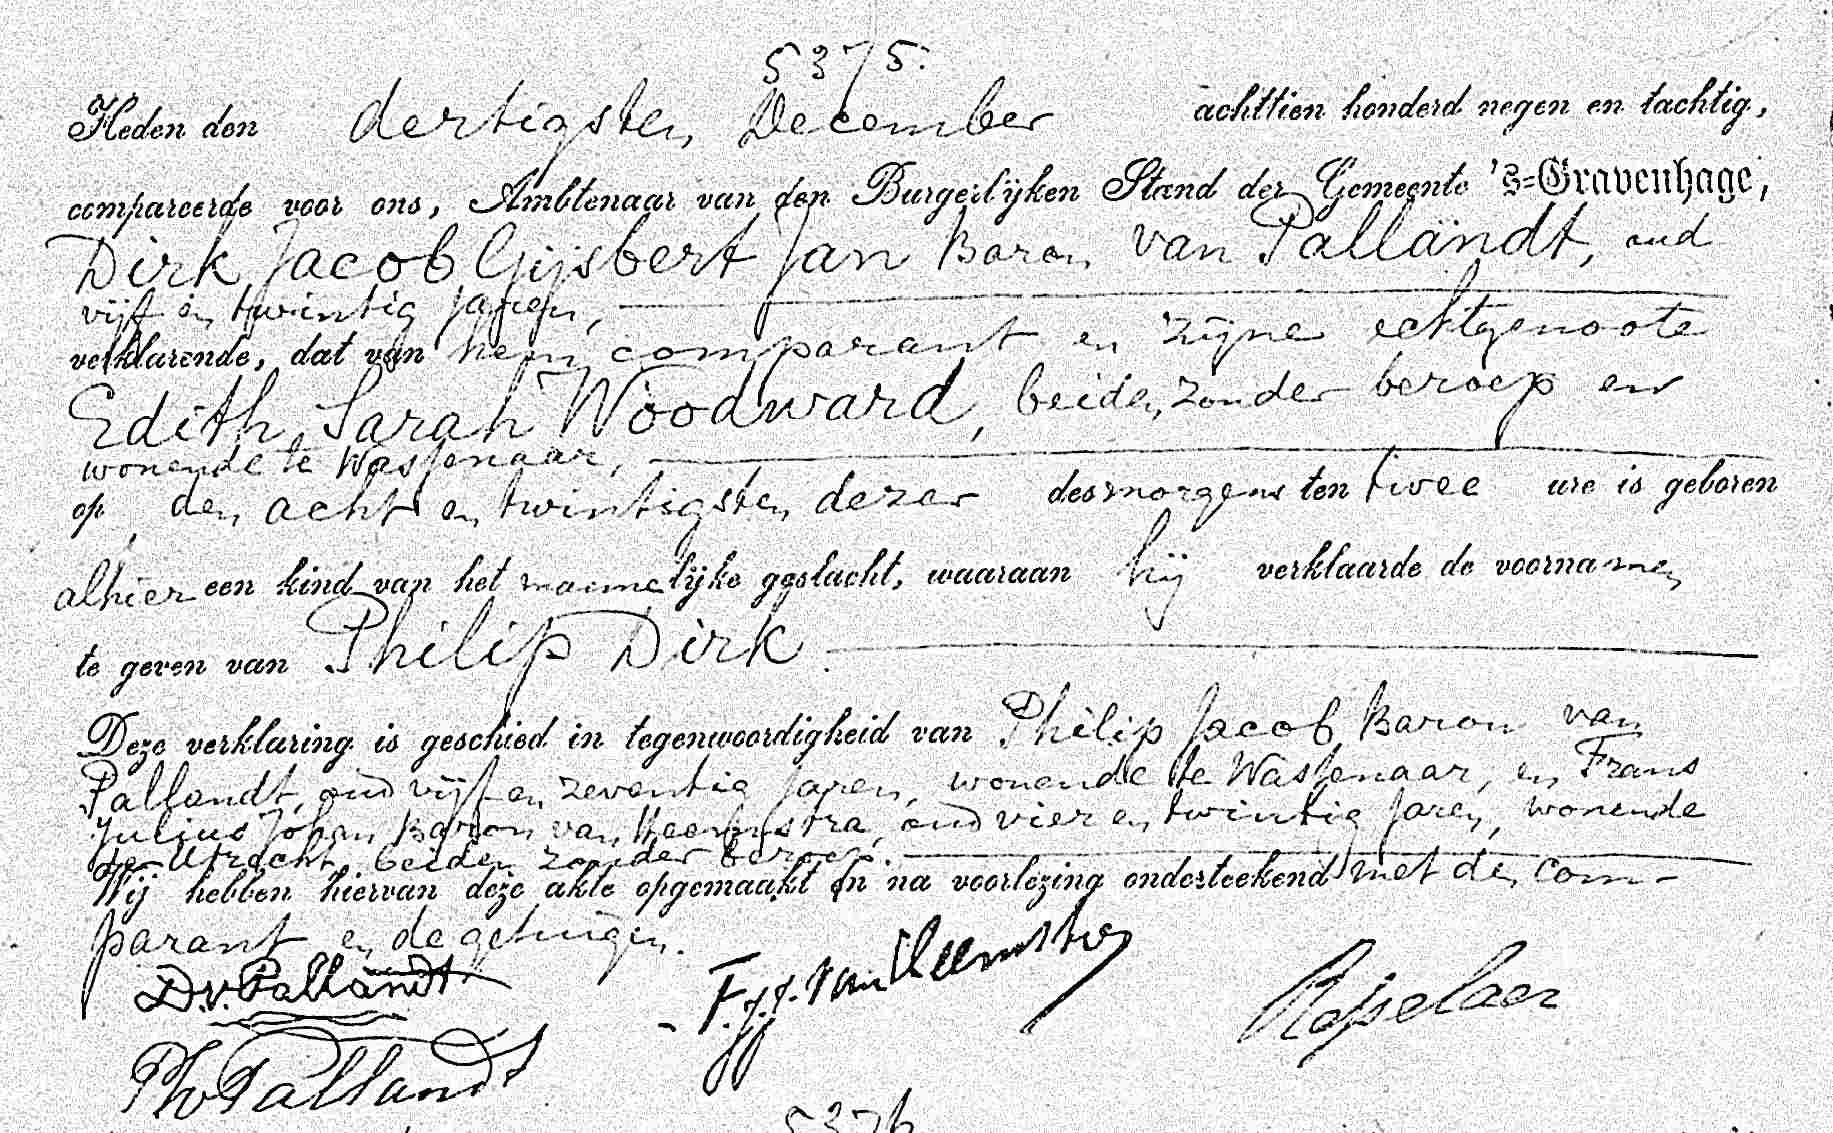 5375.
Heden den dertigsten December achttien honderd negen en tachtig,
compareerde voor ons, Ambtenaar van den Burgerlijken Stand der Gemeente 's-Gravenhage,
Dirk Jacob Gijsbert Jan Baron van Pallandt, oud
vijf en twintig jaren,
verklarende, dat van hem comparant en zijne echtgenoote
Edith Sarah Woodward, beiden zonder beroep en
wonende te Wassenaar,
op den acht en twintigsten dezer des morgens ten twee ure is geboren
alhier een kind van het mannelijke geslacht, waaraan hij verklaarde de voornamen
te geven van Philip Dirk
Deze verklaring is geschied in tegenwoordigheid van Philip Jacob Baron van
Pallandt, oud vijf en zeventig jaren, wonende te Wassenaar, en Frans
Julius Johan Baron van Heemstra, oud vier en twintig jaren, wonende
te Utrecht, beiden zonder beroep.
Wij hebben hiervan deze akte opgemaakt en na voorlezing onderteekend met den com-
parant en de getuigen.
D. v. Pallandt
F. J. J. van Heemstra
Ph v Pallandt
5376